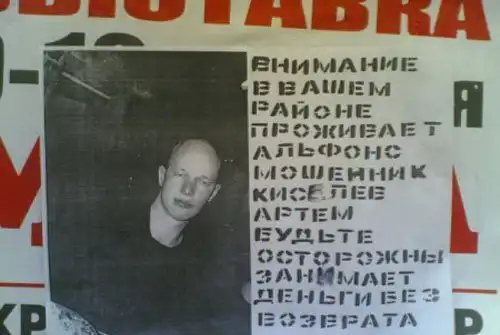 ВЫСТАВКА
ВНИМАНИЕ
В ВАШЕМ
РАЙОНЕ
ПРОЖИВАЕТ
АЛЬФОНС
МОШЕННИК
КИСЕЛЕВ
АРТЕМ
БУДЬТЕ
ОСТОРОЖНЫ
ЗАНИМАЕТ
ДЕНЬГИ БЕЗ
ВОЗВРАТА